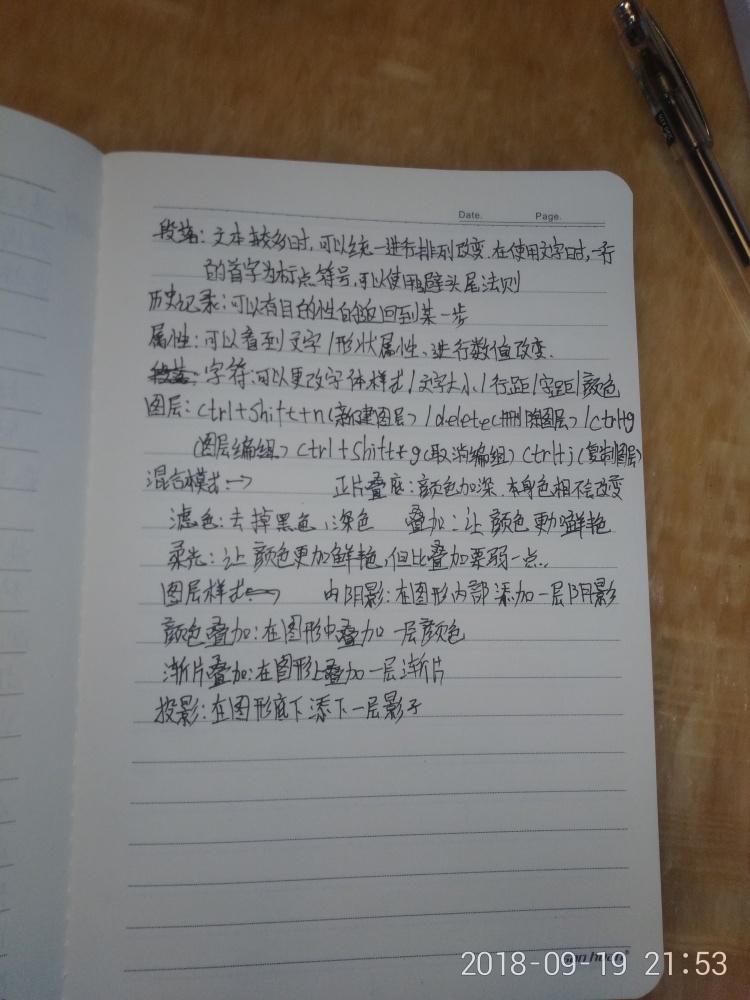 Date. Page.
段落：文本较多时，可以统一进行排列改变.在使用文字时，一行
的首字为标点符号，可以使用避头尾法则
历史记录：可以有目的性的返回到某一步
属性：可以看到文字/形状属性、进行数值改变.
段落 字符：可以更改字体样式/文字大小/行距/字距/颜色
图层：ctrl+shift+n(新建图层)/delete(删除图层)/ctrl+g
(图层编组) ctrl+shift+g(取消编组) ctrl+j(复制图层)
混合模式→ 正片叠底：颜色加深.本身色相不会改变
滤色：去掉黑色、深色 叠加：让颜色更加鲜艳
柔光：让颜色更加鲜艳,但比叠加要弱一点..
图层样式→ 内阴影：在图形内部添加一层阴影
颜色叠加：在图形中叠加一层颜色
渐片叠加：在图形上叠加一层渐片
投影：在图形底下添下一层影子
2018-09-19 21:53